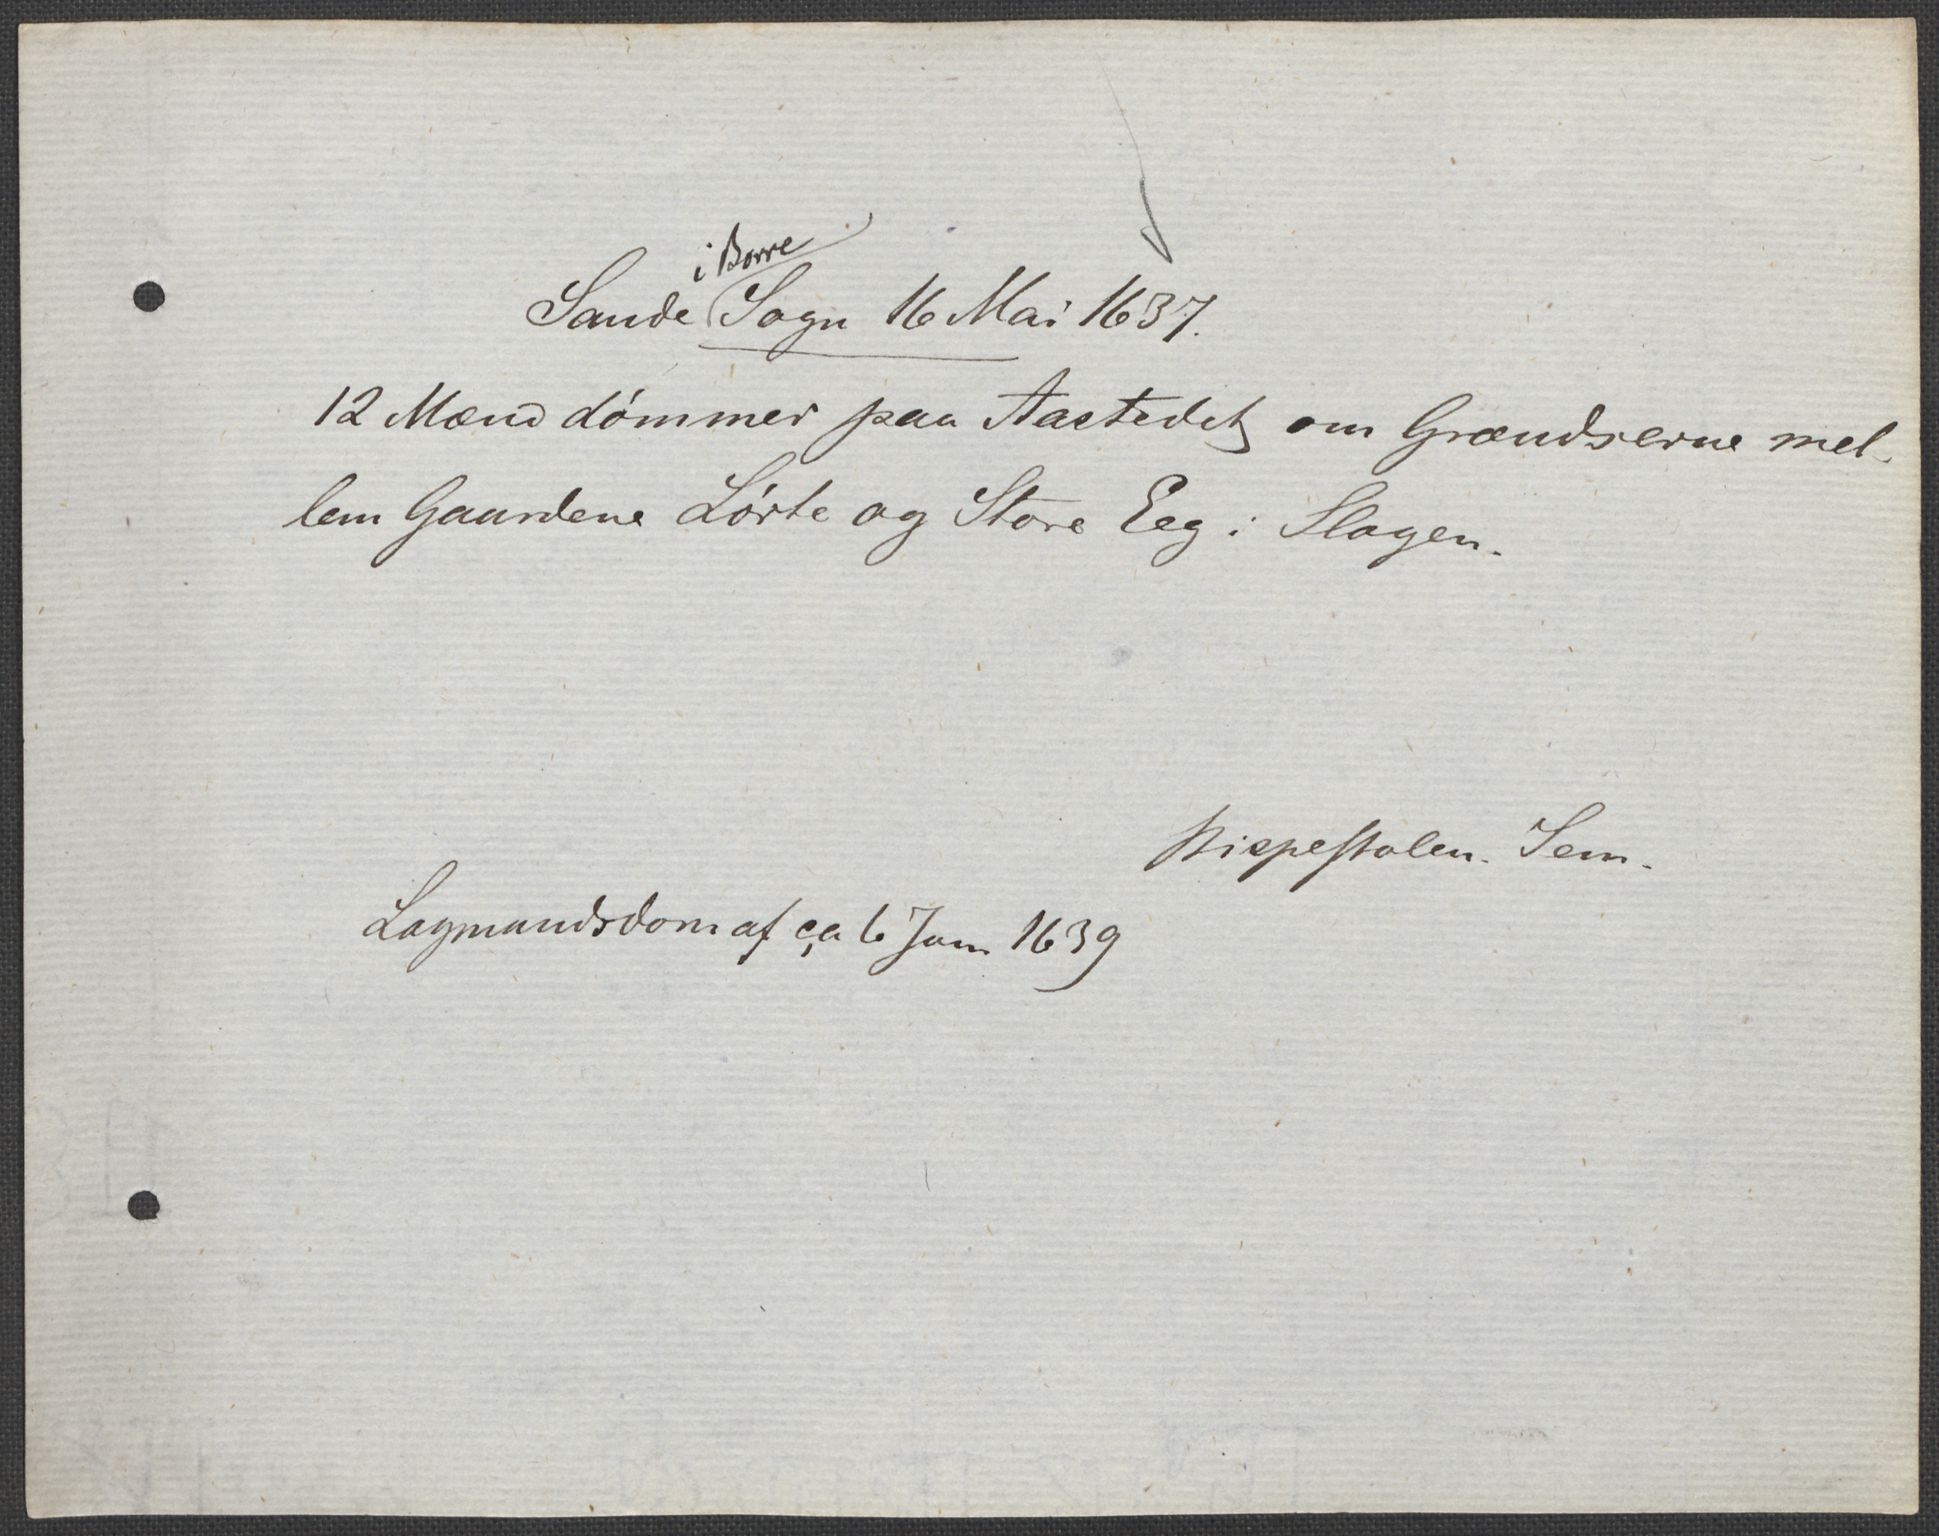 i Borre
Sande Sogn 16 Mai 1637.
12 Mænd dömmer paa Aastedet om Grændserne mel-
lem Gaardene Lörte og Store Eeg i Slagen.
Bispestolen. Sem.
Lagmandsdom af ca 6 Jan. 1639